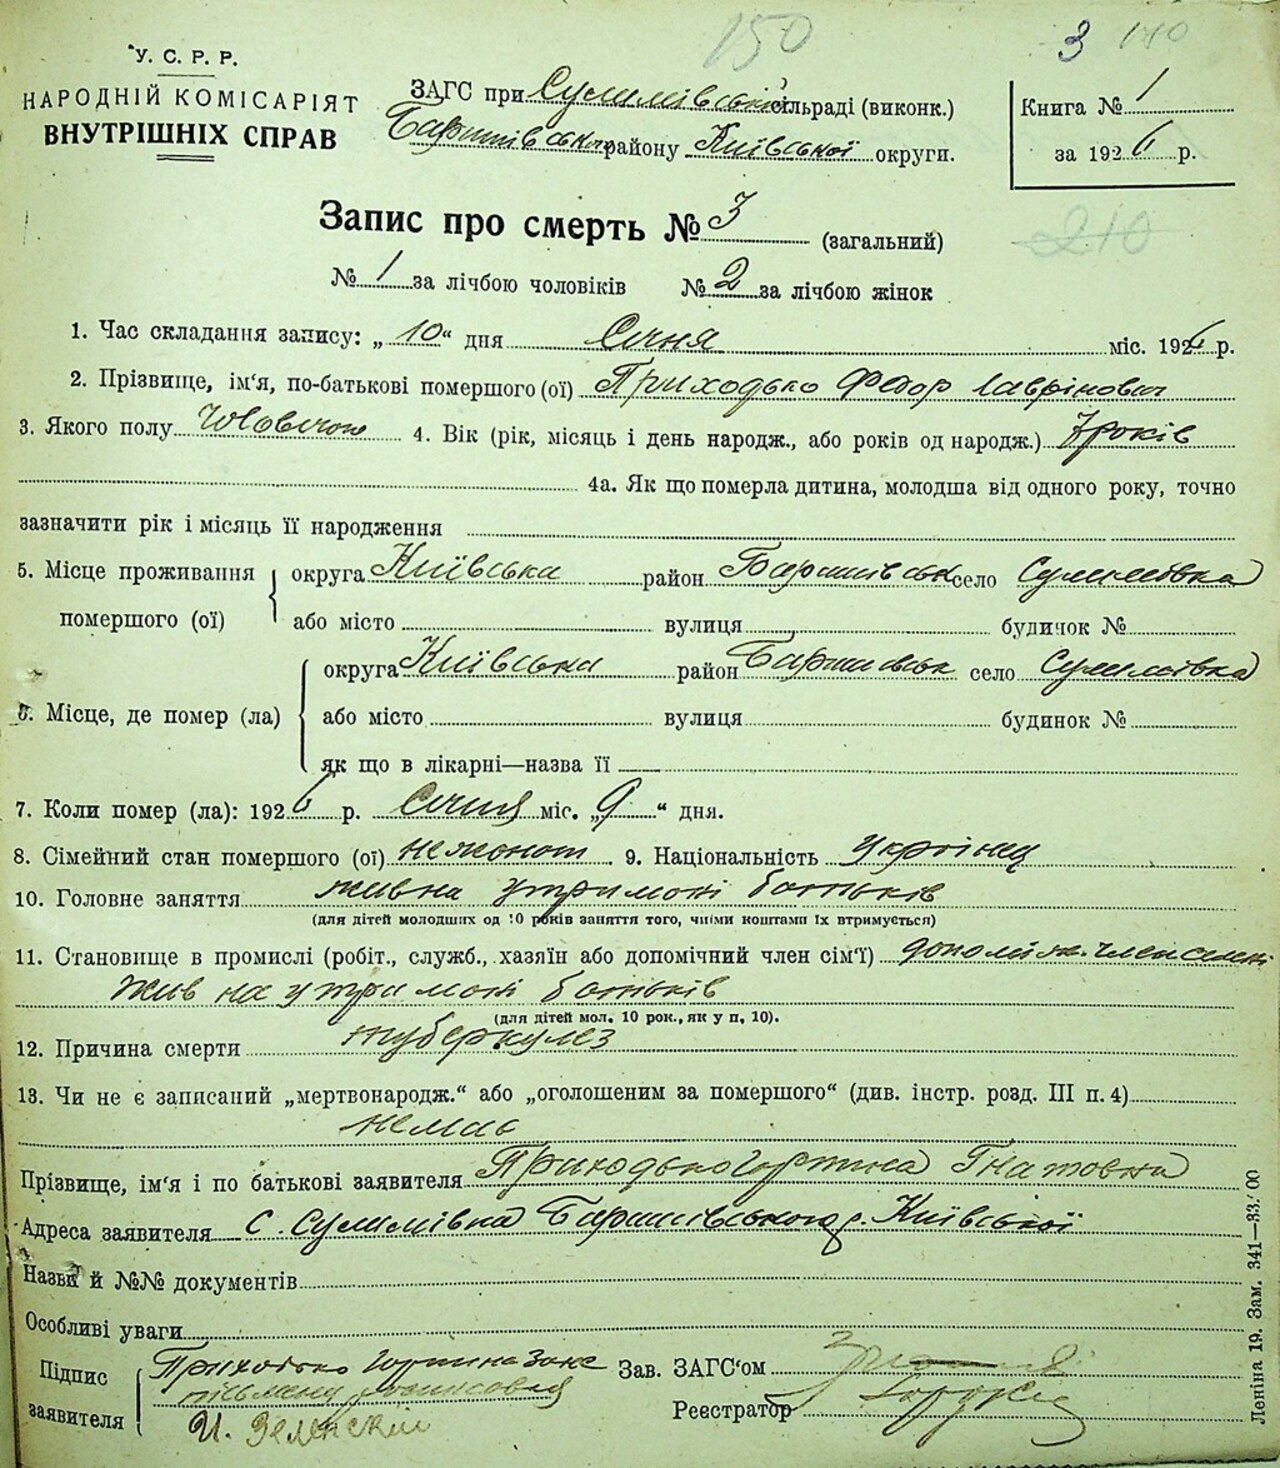 150
3 140
У. С. Р. Р.
НАРОДНІЙ КОМІСАРІЯТ
ВНУТРІШНІХ СПРАВ
ЗАГС при Сулимівській сільраді (виконк.)
Баришівського району Київської округи.
Книга № 1
за 1926 р.
Запис про смерть № 3 (загальний)
210
№ 1 за лічбою чоловіків № 2 за лічбою жінок
1. Час складання запису: „10“ дня Січня міс. 1926 р.
2. Прізвище, ім‘я, по-батькові помершого (ої) Приходько Федор Лаврінович
3. Якого полу 4. Вік (рік, місяць і день народж., або років од народж.) 7 років
4а. Як що померла дитина, молодша від одного року, точно
зазначити рік і місяць її народження
5. Місце проживання помершого (ої) округа Київська район Баришівськ село Сулимівка
або місто вулиця будинок №
6. Місце, де помер (ла) округа Київська район Баришовськ село Сулимівка
або місто вулиця будинок №
як що в лікарні—назва її
7. Коли помер (ла): 1926 р. Січня міс. „9“ дня.
8. Сімейний стан помершого (ої) нежонат 9. Національність Українец
10. Головне заняття жив на утримані батьків
(для дітей молодших од 10 років заняття того, чиїми коштами їх втримується)
11. Становище в промислі (робіт., служб., хазяїн або допомічний член сім‘ї) допоміж. член семні
Жив на утримані батьків
(для дітей мол. 10 рок., як у п. 10).
12. Причина смерти туберкулез
13. Чи не є записаний „мертвонародж.“ або „оголошеним за помершого“ (див. інстр. розд. III п. 4)
немає
Прізвище, ім‘я і по батькові заявителя Приходько Гортина Гнатовна
Адреса заявителя С. Сулимівка Баришівського р. Київської
Назви й №№ документів
Особливі уваги
Підпис заявителя Приходько Гортина
И. Зеленский
Зав. ЗАГС‘ом
Реєстратор
Леніна 19. Зам. 341—83.000